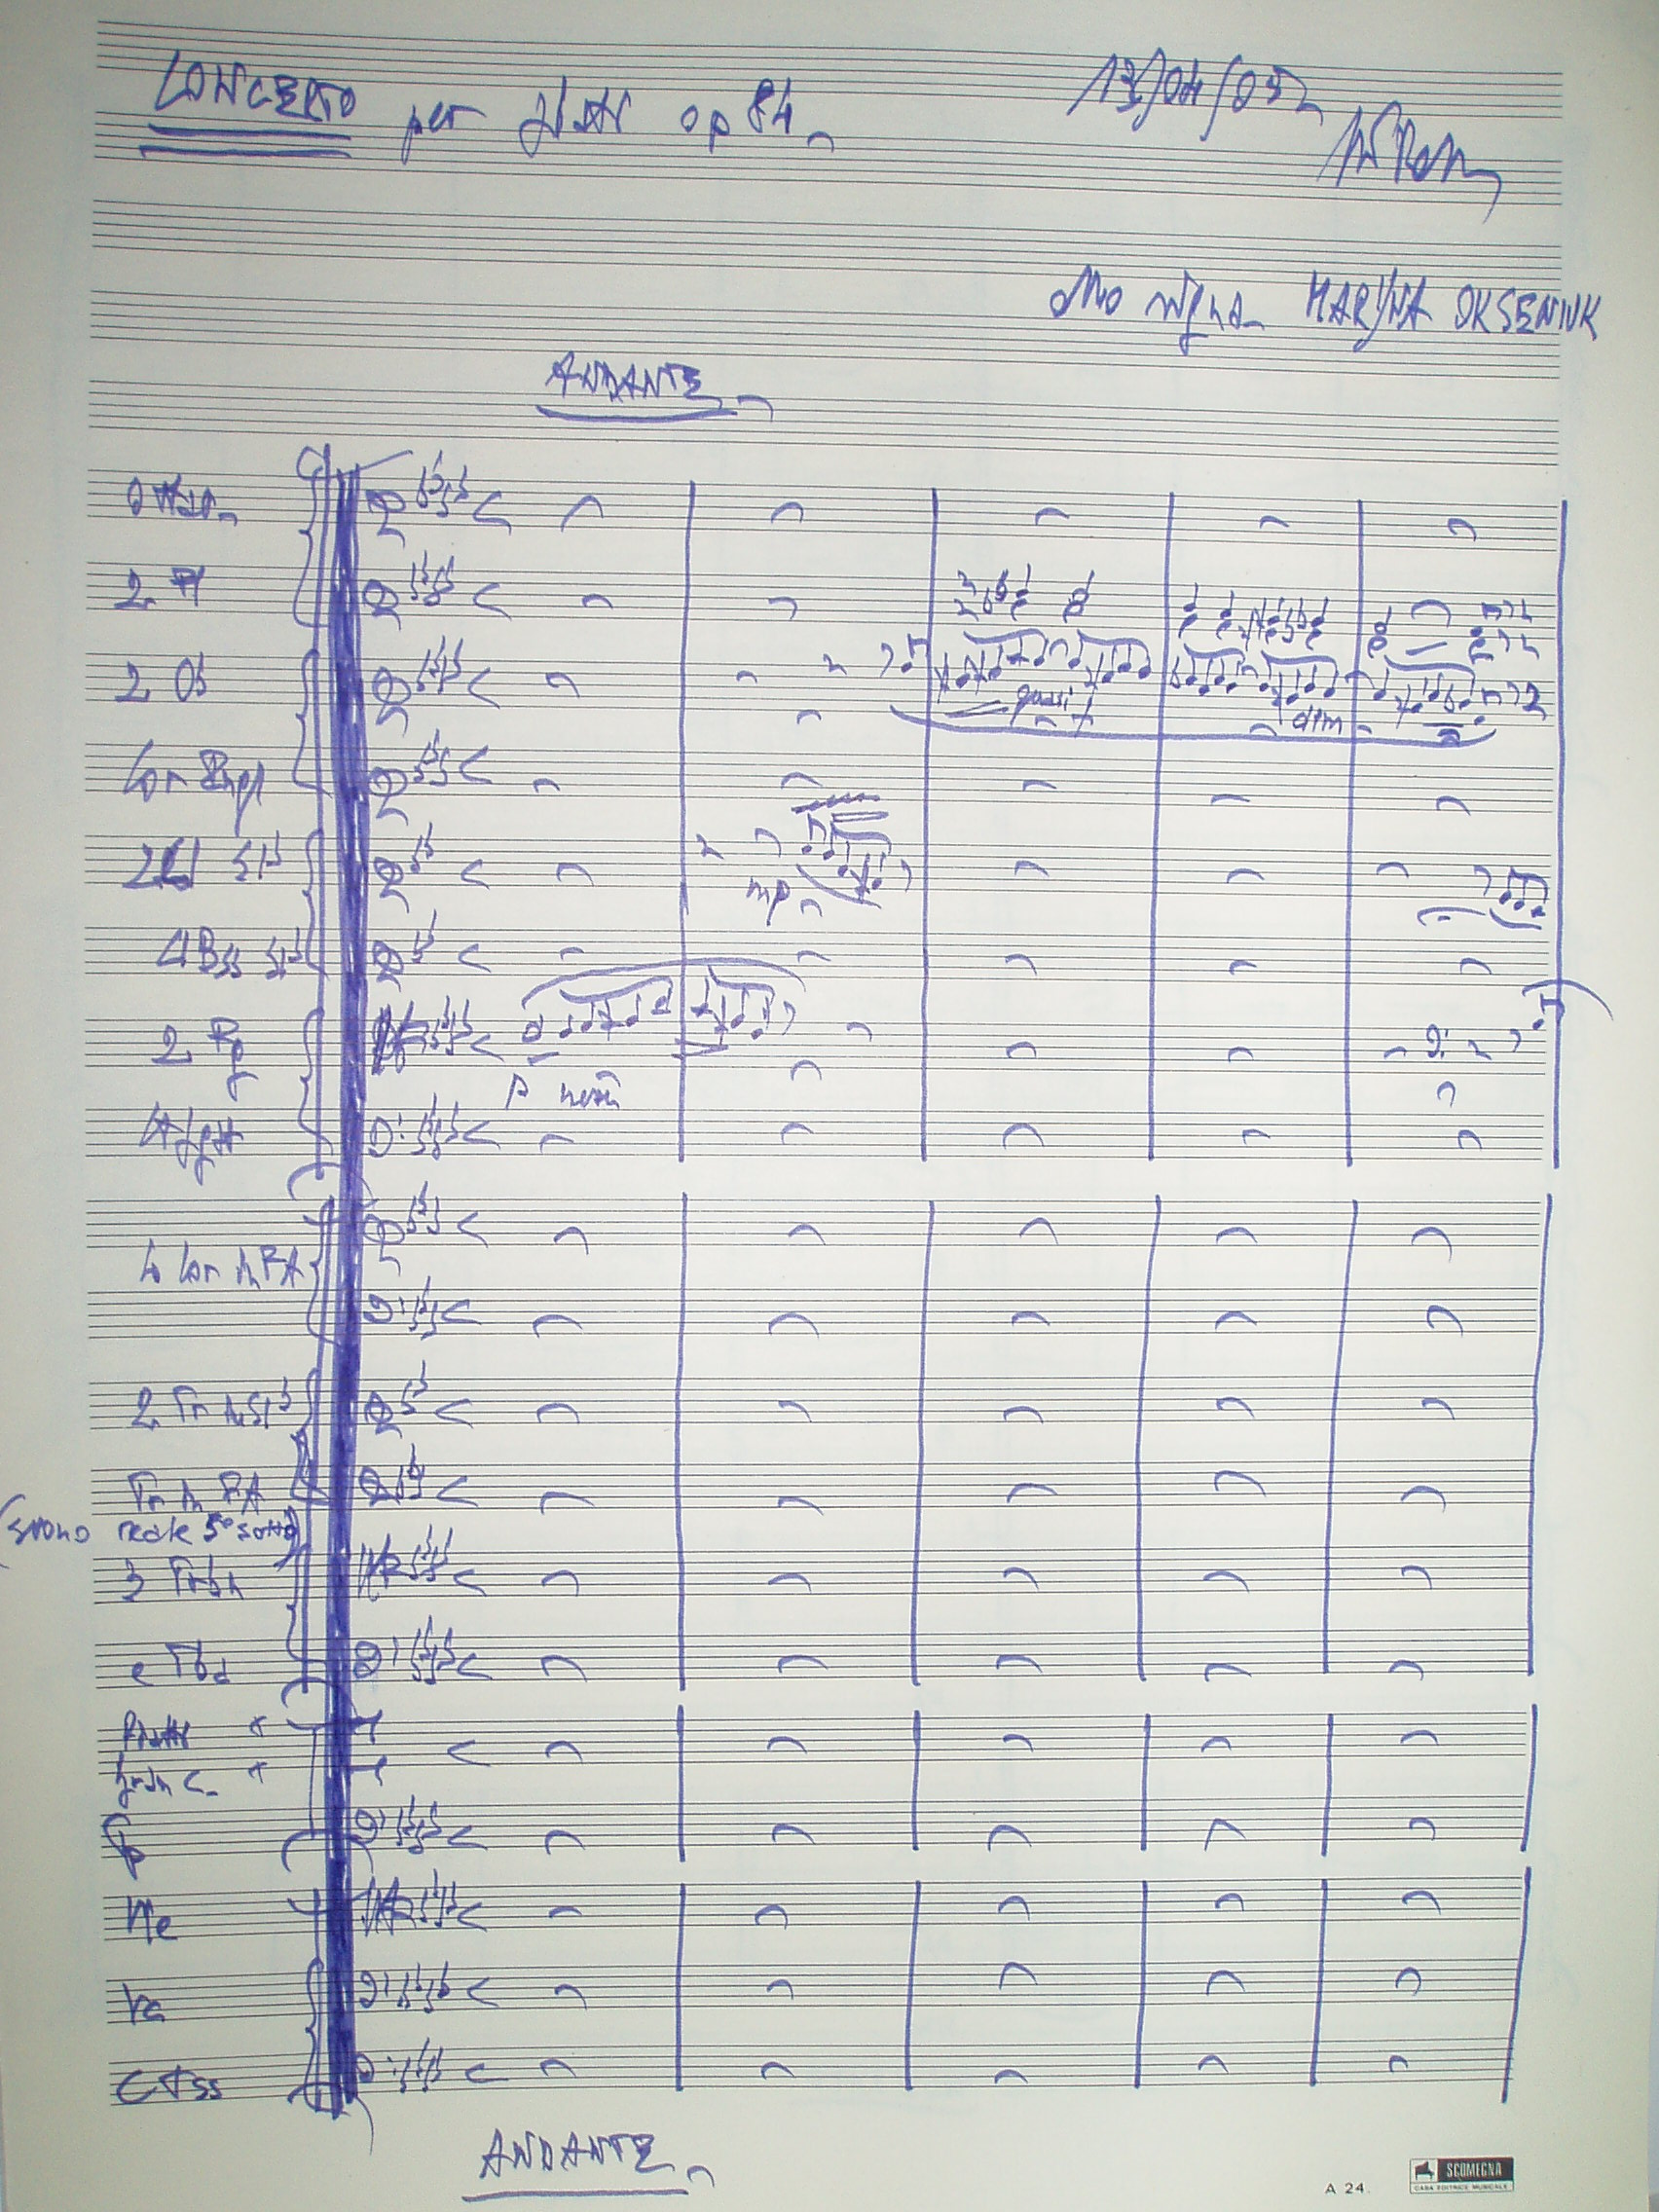 CONCERTO per op 84
13/04/05
MARYNA OKSENIUK
ANDANTE
2 Fl
2 Ob
quasi f
dim
Cor Ingl
2 Cl SIb
mp
Cl Bss SIb
2 Fg
p
4 Cor in FA
2 Tr in SIb
Tr in FA
(suono reale 5ª sotto)
3 Trbn
e Tba
Piatti
Gran C
Tp
Vle
Vc
CBss
ANDANTE
A 24.
SCOMEGNA
CASA EDITRICE MUSICALE